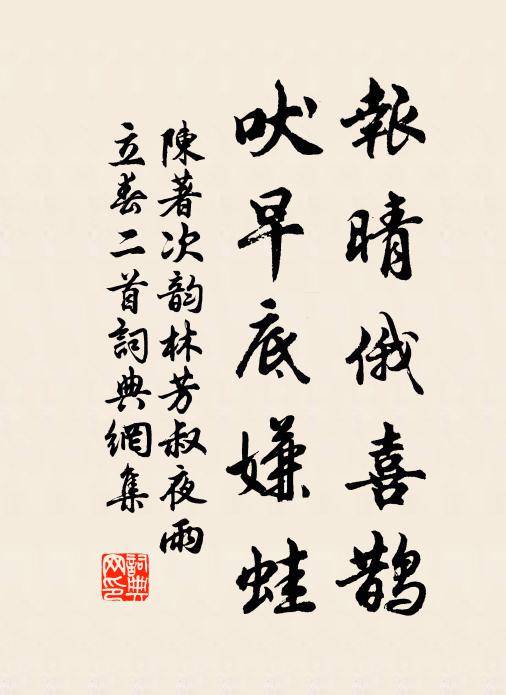 報晴俄喜鵲
吠早底嫌蛙
陳著次韵林芳叔夜雨
立春二首詞典網集
詞典网印